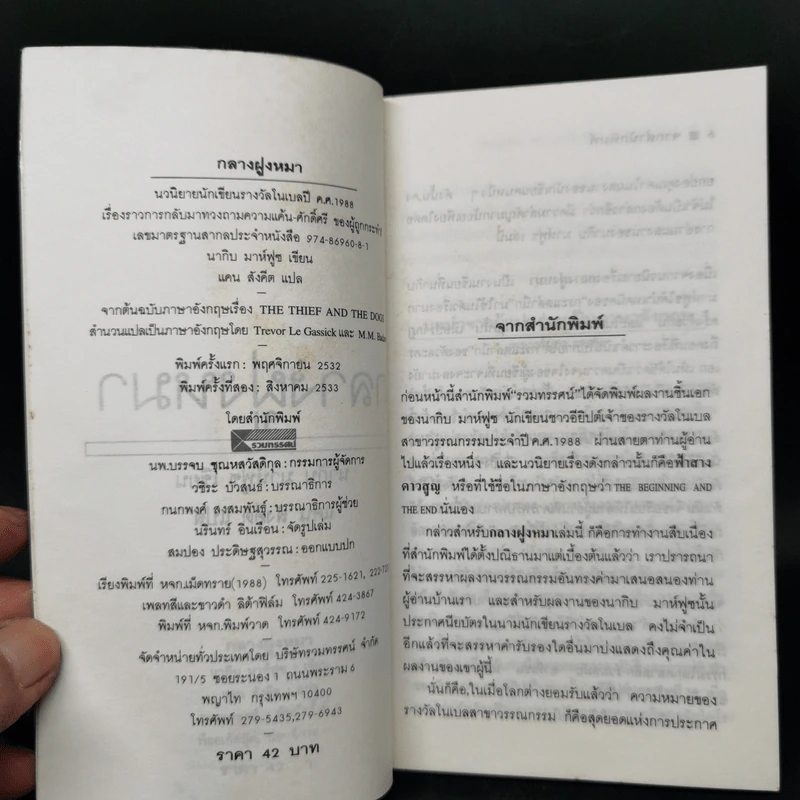 กลางฝูงหมา
นวนิยายนักเขียนรางวัลโนเบลปี ค.ศ.1988
เรื่องราวการกลับมาทวงถามความแค้น-ศักดิ์ศรี ของผู้ถูกกระทำ
เลขมาตรฐานสากลประจำหนังสือ 974-86960-8-1
นากิบ มาห์ฟูซ เขียน
แคน สังคีต แปล
จากต้นฉบับภาษาอังกฤษเรื่อง THE THIEF AND THE DOGS
สำนวนแปลเป็นภาษาอังกฤษโดย Trevor Le Gassick และ M.M.
พิมพ์ครั้งแรก : พฤศจิกายน 2532
พิมพ์ครั้งที่สอง : สิงหาคม 2533
โดยสำนักพิมพ์
รวมทรรศน์
นพ.บรรจบ ชุณหสวัสดิกุล : กรรมการผู้จัดการ
วชิระ บัวสนธ์ : บรรณาธิการ
กนกพงศ์ สงสมพันธุ์ : บรรณาธิการผู้ช่วย
นรินทร์ อินเรือน : จัดรูปเล่ม
สมปอง ประดิษฐสุวรรณ : ออกแบบปก
เรียงพิมพ์ที่ หจก.เม็ดทราย(1988) โทรศัพท์ 225-1621,
เพลทสีและขาวดำ สิต้าฟิล์ม โทรศัพท์ 424-3867
พิมพ์ที่ หจก.พิมพ์วาด โทรศัพท์ 424-9172
จัดจำหน่ายทั่วประเทศโดย บริษัทรวมทรรศน์ จำกัด
191/5 ซอยระนอง 1 ถนนพระราม 6
พญาไท กรุงเทพฯ 10400
โทรศัพท์ 279-5435,279-6943
ราคา 42 บาท
จากสำนักพิมพ์
ก่อนหน้านี้สำนักพิมพ์"รวมทรรศน์"ได้จัดพิมพ์ผลงานชิ้นเอก
ของนากิบ มาห์ฟูซ นักเขียนชาวอียิปต์เจ้าของรางวัลโนเบล
สาขาวรรณกรรมประจำปี ค.ศ.1988 ผ่านสายตาท่านผู้อ่าน
ไปแล้วเรื่องหนึ่ง และนวนิยายเรื่องดังกล่าวนั้นก็คือฟ้าสาง
ดาวสูญ หรือที่ใช้ชื่อในภาษาอังกฤษว่า THE BEGINNING AND
THE END นั่นเอง
กล่าวสำหรับกลางฝูงหมาเล่มนี้ ก็คือการทำงานสืบเนื่อง
ที่สำนักพิมพ์ได้ตั้งปณิธานมาแต่เบื้องต้นแล้วว่า เราปรารถนา
ที่จะสรรหาผลงานวรรณกรรมอันทรงค่ามาเสนอสนองท่าน
ผู้อ่านบ้านเรา และสำหรับผลงานของนากิบ มาห์ฟูซนั้น
ประกาศนียบัตรในนามนักเขียนรางวัลโนเบล คงไม่จำเป็น
อีกแล้วที่จะสรรหาคำรับรองใดอื่นมาบ่งแสดงถึงคุณค่าใน
ผลงานของเขาผู้นี้
นั่นก็คือ,ในเมื่อโลกต่างยอมรับแล้วว่า ความหมายของ
รางวัลโนเบลสาขาวรรณกรรม ก็คือสุดยอดแห่งการประกาศ